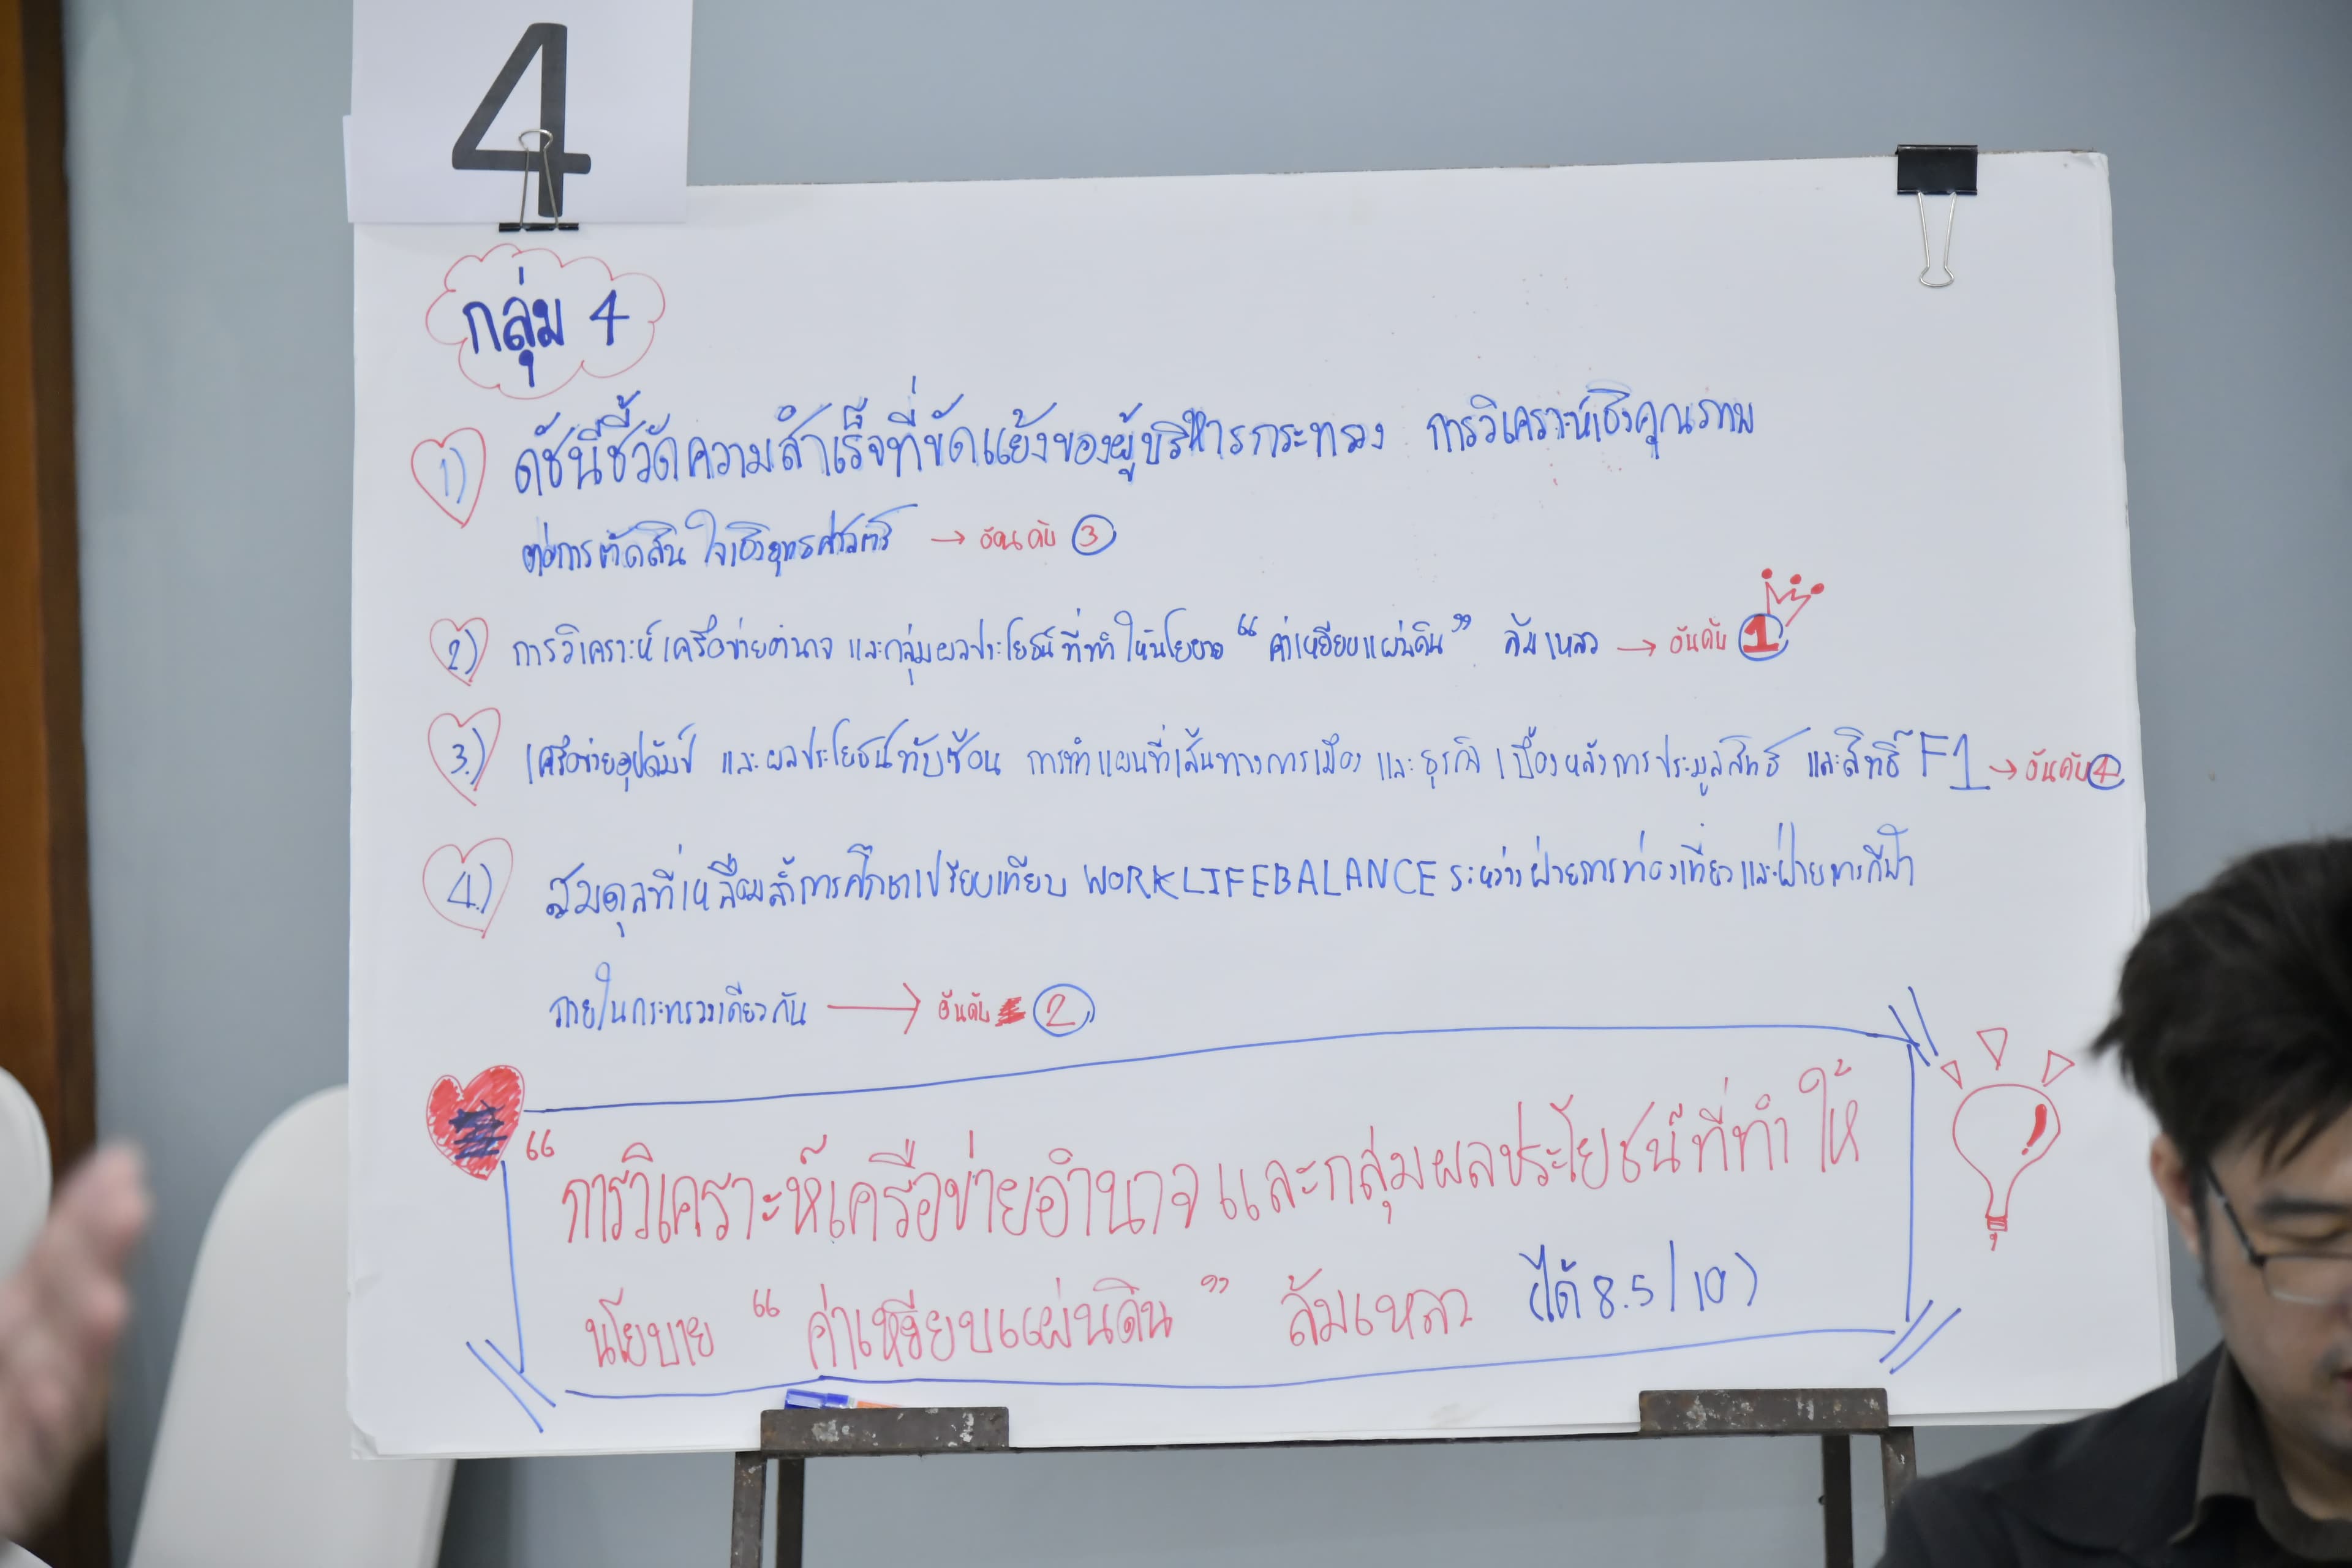 4
กลุ่ม 4
1) ดัชนีชี้วัดความสำเร็จที่ขัดแย้งของผู้บริหารกระทรวง การวิเคราะห์เชิงคุณภาพ
ต่อการตัดสินใจเชิงยุทธศาสตร์ → อันดับ 3
2) การวิเคราะห์เครือข่ายอำนาจ และกลุ่มผลประโยชน์ที่ทำให้นโยบาย “ค่าเหยียบแผ่นดิน” ล้มเหลว → อันดับ 1
3.) เครือข่ายอุปถัมป์ และผลประโยชน์ทับซ้อน การทำแผนที่เส้นทางการเมือง และธุรกิจเบื้องหลังการประมูลสิทธิ และสิทธิ์ F1 → อันดับ 4
4.) สมดุลที่เหลื่อมล้ำการศึกษาเปรียบเทียบ WORKLIFEBALANCE ระหว่างฝ่ายการท่องเที่ยวและฝ่ายการกีฬา
ภายในกระทรวงเดียวกัน → อันดับ 2
“การวิเคราะห์เครือข่ายอำนาจและกลุ่มผลประโยชน์ที่ทำให้
นโยบาย “ค่าเหยียบแผ่นดิน” ล้มเหลว (ได้ 8.5/10)